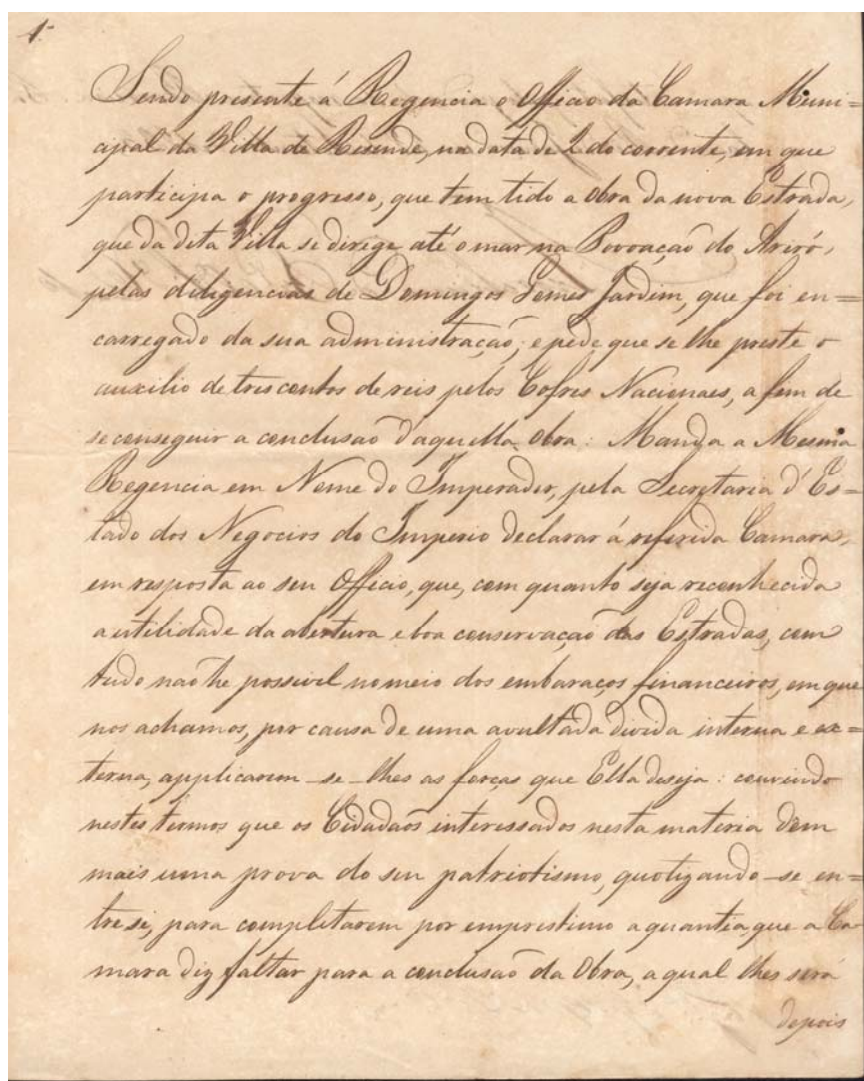 1.
Sendo presente á Regencia o Officio da Camara Muni=
cipal da Villa de Resende, na data de 2 do corrente, em que
participa o progresso, que tem tido a obra da nova Estrada,
que da dita Villa se dirige até o mar na Povoação do Ariró,
pelas diligencias de Domingos Gomes Jardim, que foi en=
carregado da sua administração; e pede que se lhe preste o
auxilio de tres contos de reis pelos Cofres Nacionaes, a fim de
se conseguir a conclusaõ d'aquella obra: Manda a Mesma
Regencia em Nome do Imperador, pela Secretaria d'Es=
tado dos Negocios do Imperio declarar á referida Camara,
em resposta ao seu Officio, que, com quanto seja reconhecida
a utilidade da abertura e boa conservaçaõ das Estradas, com
tudo naõ he possivel no meio dos embaraços financeiros, em que
nos achamos, por causa de uma avultada divida interna e ex=
terna, applicarem-se-lhes as forças que Ella deseja: convindo
nestes termos que os Cidadaõs interessados nesta materia dem
mais uma prova do seu patriotismo, quotizando-se en=
tre si, para completarem por emprestimo a quantia, que a Ca-
mara diz faltar para a conclusaõ da Obra, a qual lhes será
depois